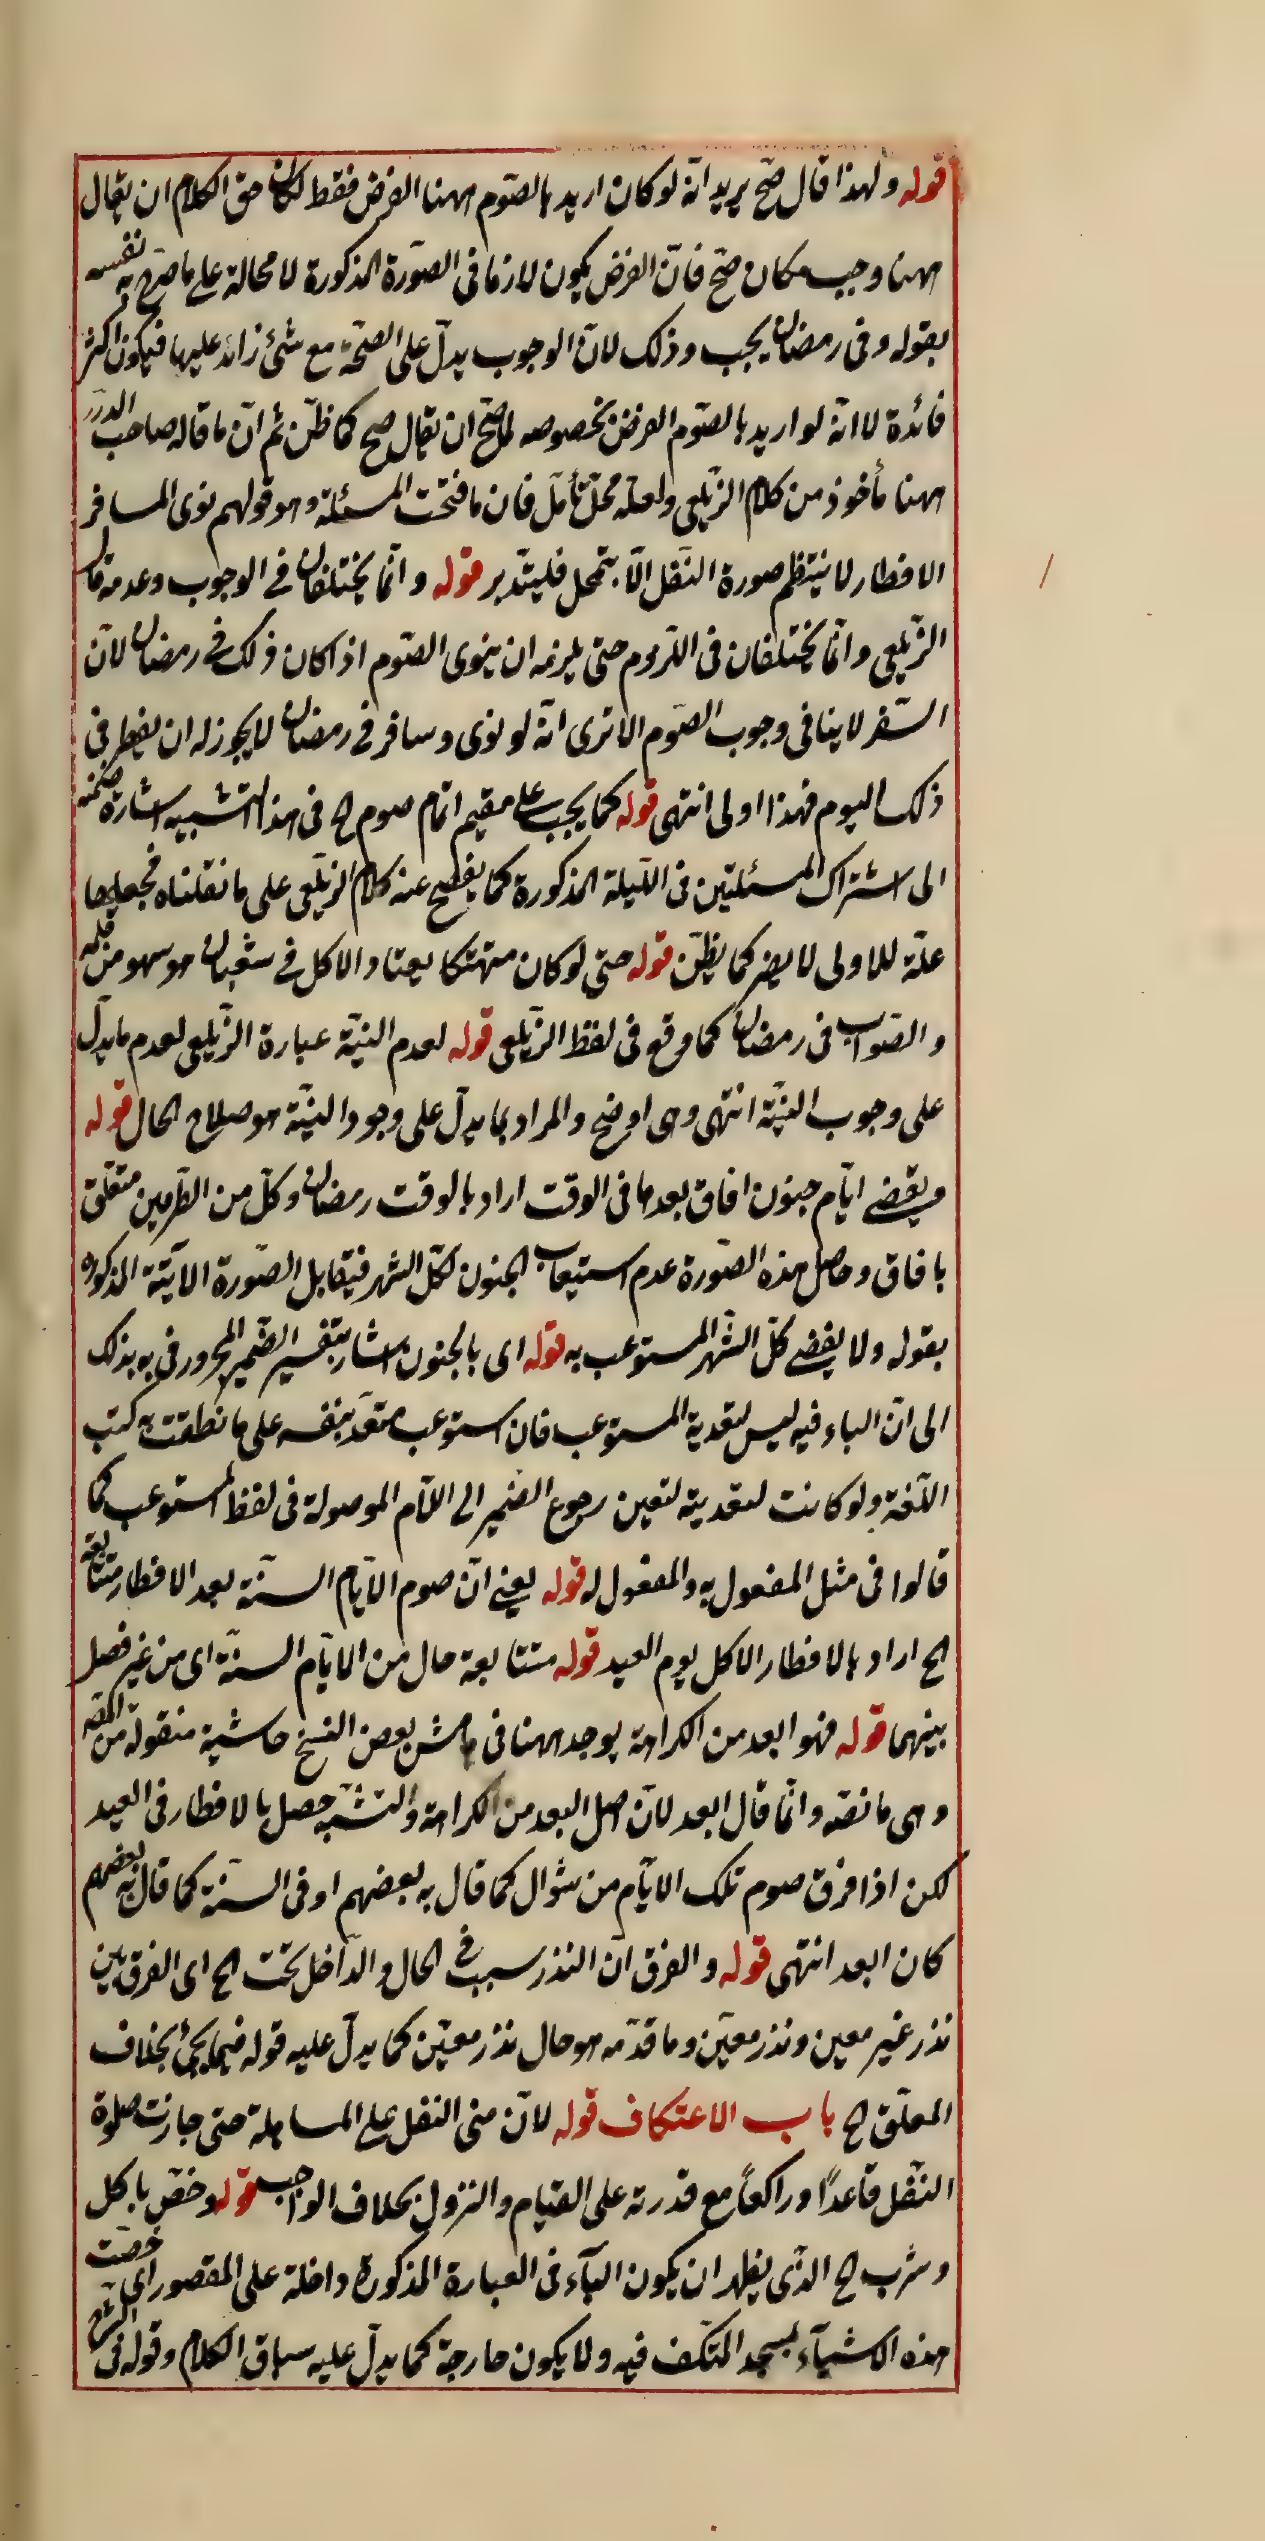 قوله ولهذا قال صح يريد انه لو كان اريد بالصوم ههنا الفرض فقط لكان حق الكلام ان يقال
ههنا وجب مكان صح فان الفرض يكون لازما فى الصورة المذكورة لا محالة على ما صرح به نفسه
بقوله وفى رمضان يجب وذلك لان الوجوب يدل على الصحة مع شئ زائد عليها فيكون اكثر
فائدة لا انه لو اريد بالصوم الفرض بخصوصه لما صح ان يقال صح كما ظن ثم ان ما قاله صاحب الدرر
ههنا مأخوذ من كلام الزيلعى ولعله محل تأمل فان ما فتحت المسئلة وهو قولهم نوى المسافر
الافطار لا ينتظم صورة النفل الا بتمحل فليتدبر قوله وانما يختلفان فى الوجوب وعدمه قال
الزيلعى وانما يختلفان فى اللزوم حتى يلزمه ان ينوى الصوم اذا كان ذلك فى رمضان لان
السفر لا ينافى وجوب الصوم الا ترى انه لو نوى وسافر فى رمضان لا يجوز له ان يفطر فى
ذلك اليوم فهذا اولى انتهى قوله كما يجب على مقيم اتمام صوم الح فى هذا التشبيه اشارة ضمنية
الى اشتراك المسئلتين فى الليلة المذكورة كما يفصح عنه كلام الزيلعى على ما نقلناه فجعلها
علة للاولى لا يضر كما يظن قوله حتى لو كان متهتكا يعتاد الاكل فى شعبان هو سهو من قلمه
والصواب فى رمضان كما وقع فى لفظ الزيلعى قوله لعدم النية عبارة الزيلعى لعدم ما يدل
على وجوب النية انتهى وهى اوضح والمراد بما يدل على وجود النية هو صلاح الحال قوله
ويقضى ايام جنون افاق بعدها فى الوقت اراد بالوقت رمضان وكل من الظرفين متعلق
بافاق وحاصل هذه الصورة عدم استيعاب الجنون لكل الشهر فيقابل الصورة الآتية المذكورة
بقوله ولا يقضى كل الشهر المستوعب به قوله اى بالجنون اشار بتفسير الضمير المجرور فى به بذلك
الى ان الباء فيه ليس لتعدية المستوعب فان استوعب متعد بنفسه على ما نطقت به كتب
اللغة ولو كانت لتعديته لتعين رجوع الضمير الى اللام الموصولة فى لفظ المستوعب كما
قالوا فى مثل المفعول به والمفعول له قوله يعنى ان صوم الايام الستة بعد الافطار متتابعة
الح اراد بالافطار الاكل يوم العيد قوله متتابعة حال من الايام الستة اى من غير فصل
بينهما قوله فهو ابعد من الكراهة يوجد ههنا فى هامش بعض النسخ حاشية منقولة من المصه
وهى ما نصه وانما قال ابعد لان اصل البعد من الكراهة والتشبه حصل بالافطار فى العيد
لكن اذا فرق صوم تلك الايام من شوال كما قال به بعضهم او فى السنة كما قال به بعضهم
كان ابعد انتهى قوله والفرق ان النذر سبب فى الحال والداخل تحت الح اى الفرق بين
نذر غير معين ونذر معين وما قدمه هو حال نذر معين كما يدل عليه قوله فيما يجئ بخلاف
المعلق الح باب الاعتكاف قوله لان مبنى النفل على المساهلة حتى جازت صلوة
النفل قاعدا وراكعا مع قدرته على القيام والنزول بخلاف الواجب قوله وخص باكل
وشرب الح الذى يظهر ان يكون الباء فى العبارة المذكورة داخلة على المقصور اى خصت
هذه الاشياء بمسجد المعتكف فيه ولا يكون خارجة كما يدل عليه سياق الكلام وقوله فى الشرح